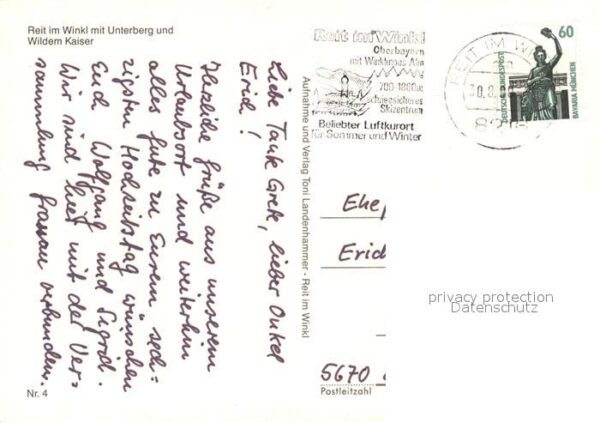 Reit im Winkl mit Unterberg und
Wildem Kaiser
Liebe Tante Grete, lieber Onkel
Erich!
Herzliche Grüße aus unserem
Urlaubsort und weiterhin
alles gute zu Eurem "sech=
zigsten Hochzeitstag wünschen
Euch Wolfgang und Sigrid.
Wir sind hier mit der Ver=
sammlung Passau verbunden.
Nr. 4
Aufnahme und Verlag Toni Landenhammer - Reit im Winkl
Reit im Winkl
Oberbayern
mit Winklmoos Alm
700-1800m
schneesicheres
Skizentrum
Beliebter Luftkurort
für Sommer und Winter
REIT IM WI
30.8.
821
60
DEUTSCHE BUNDESPOST
BAVARIA MÜNCHEN
Ehep
Erich
5670
Postleitzahl
privacy protection
Datenschutz